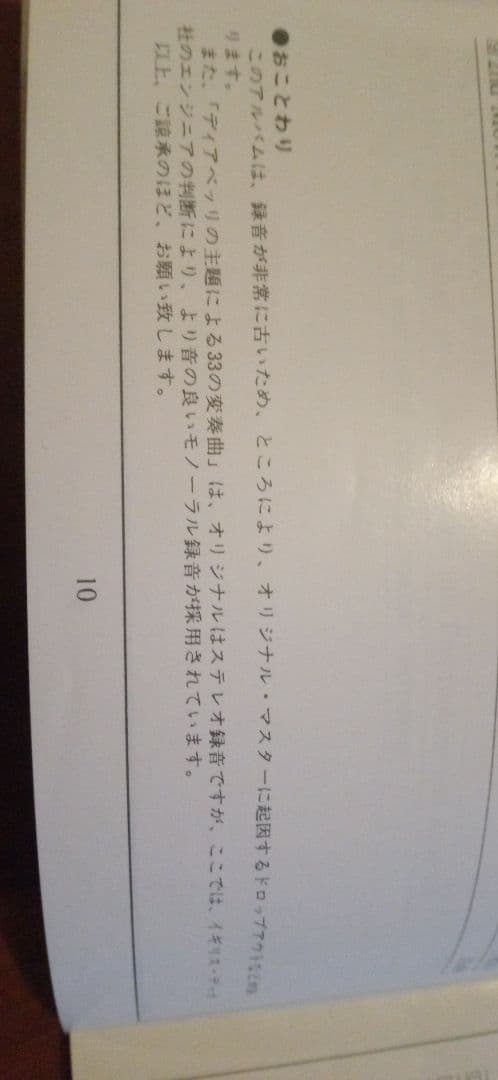 ●おことわり
このアルバムは、録音が非常に古いため、ところにより、オリジナル・マスターに起因するドロップアウトなどが
ります。
また、「ディアベッリの主題による33の変奏曲」は、オリジナルはステレオ録音ですが、ここでは、イギリス・デッカ
社のエンジニアの判断により、より音の良いモノーラル録音が採用されています。
以上、ご諒承のほど、お願い致します。
10